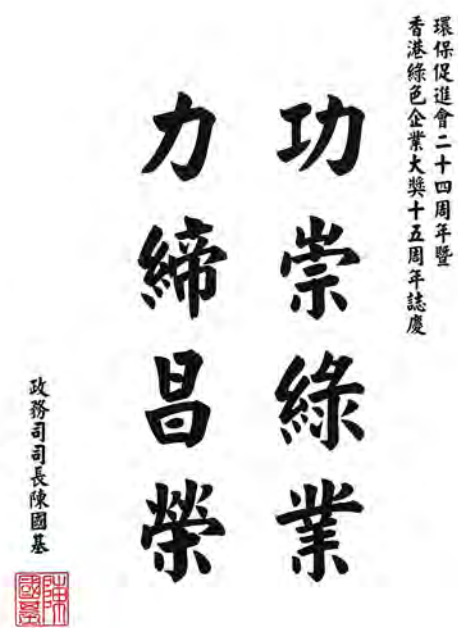 環保促進會二十四周年暨
香港綠色企業大獎十五周年誌慶
功崇綠業
力締昌榮
政務司司長陳國基
陳國基